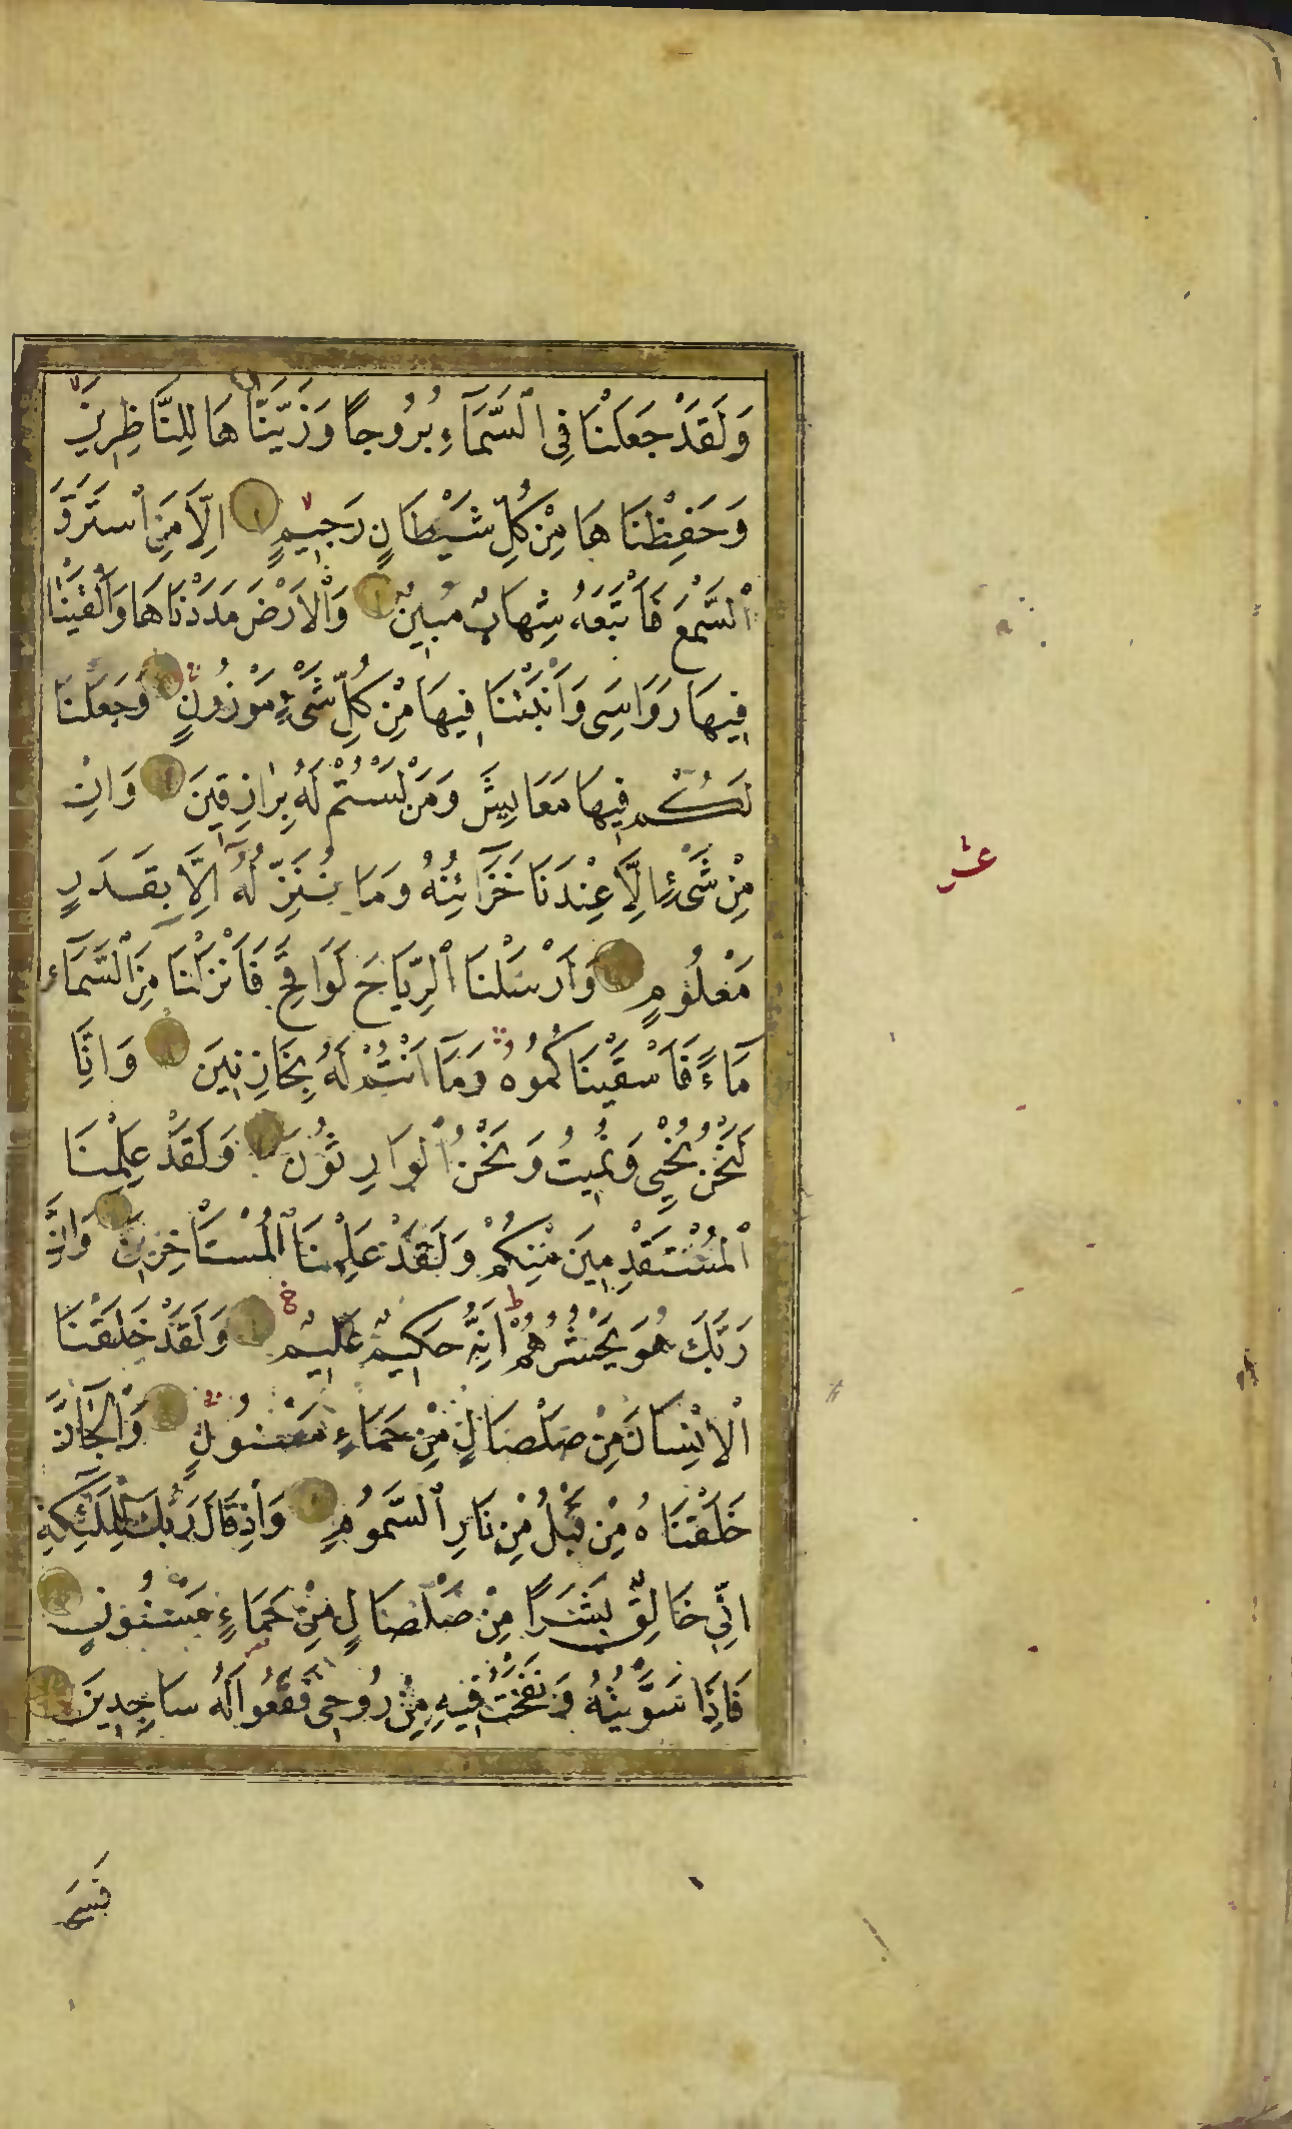 وَلَقَدْ جَعَلْنَا فِي ٱلسَّمَآءِ بُرُوجًا وَزَيَّنَّا هَا لِلنَّاظِرِينَ
وَحَفِظْنَا هَا مِنْ كُلِّ شَيْطَانٍ رَجِيمٍ اِلَّا مَنِ ٱسْتَرَقَ
ٱلسَّمْعَ فَاَتْبَعَهُ شِهَابٌ مُبِينٌ وَٱلْاَرْضَ مَدَدْنَاهَا وَاَلْقَيْنَا
فِيهَا رَوَاسِىَ وَاَنْبَتْنَا فِيهَا مِنْ كُلِّ شَىْءٍ مَوْزُونٍ وَجَعَلْنَا
لَكُمْ فِيهَا مَعَايِشَ وَمَنْ لَسْتُمْ لَهُ بِرَازِقِينَ وَاِنْ
مِنْ شَىْءٍ اِلَّا عِنْدَنَا خَزَآئِنُهُ وَمَا نُنَزِّلُهُ اِلَّا بِقَدَرٍ
مَعْلُومٍ وَاَرْسَلْنَا ٱلرِّيَاحَ لَوَاقِحَ فَاَنْزَلْنَا مِنَ ٱلسَّمَآءِ
مَآءً فَاَسْقَيْنَا كُمُوهُ وَمَآ اَنْتُمْ لَهُ بِخَازِنِينَ وَاِنَّا
لَنَحْنُ نُحْيِى وَنُمِيتُ وَنَحْنُ ٱلْوَارِثُونَ وَلَقَدْ عَلِمْنَا
ٱلْمُسْتَقْدِمِينَ مِنْكُمْ وَلَقَدْ عَلِمْنَا ٱلْمُسْتَاْخِرِينَ وَاِنَّ
رَبَّكَ هُوَ يَحْشُرُهُمْ اِنَّهُ حَكِيمٌ عَلِيمٌ وَلَقَدْ خَلَقْنَا
ٱلْاِنْسَانَ مِنْ صَلْصَالٍ مِنْ حَمَاءٍ مَسْنُونٍ وَٱلْجَآنَّ
خَلَقْنَاهُ مِنْ قَبْلُ مِنْ نَارِ ٱلسَّمُومِ وَاِذْ قَالَ رَبُّكَ لِلْمَلٰٓئِكَةِ
اِنِّى خَالِقٌ بَشَرًا مِنْ صَلْصَالٍ مِنْ حَمَاءٍ مَسْنُونٍ
فَاِذَا سَوَّيْتُهُ وَنَفَخْتُ فِيهِ مِنْ رُوحِى فَقَعُوا لَهُ سَاجِدِينَ
عشر
فَسَجَ